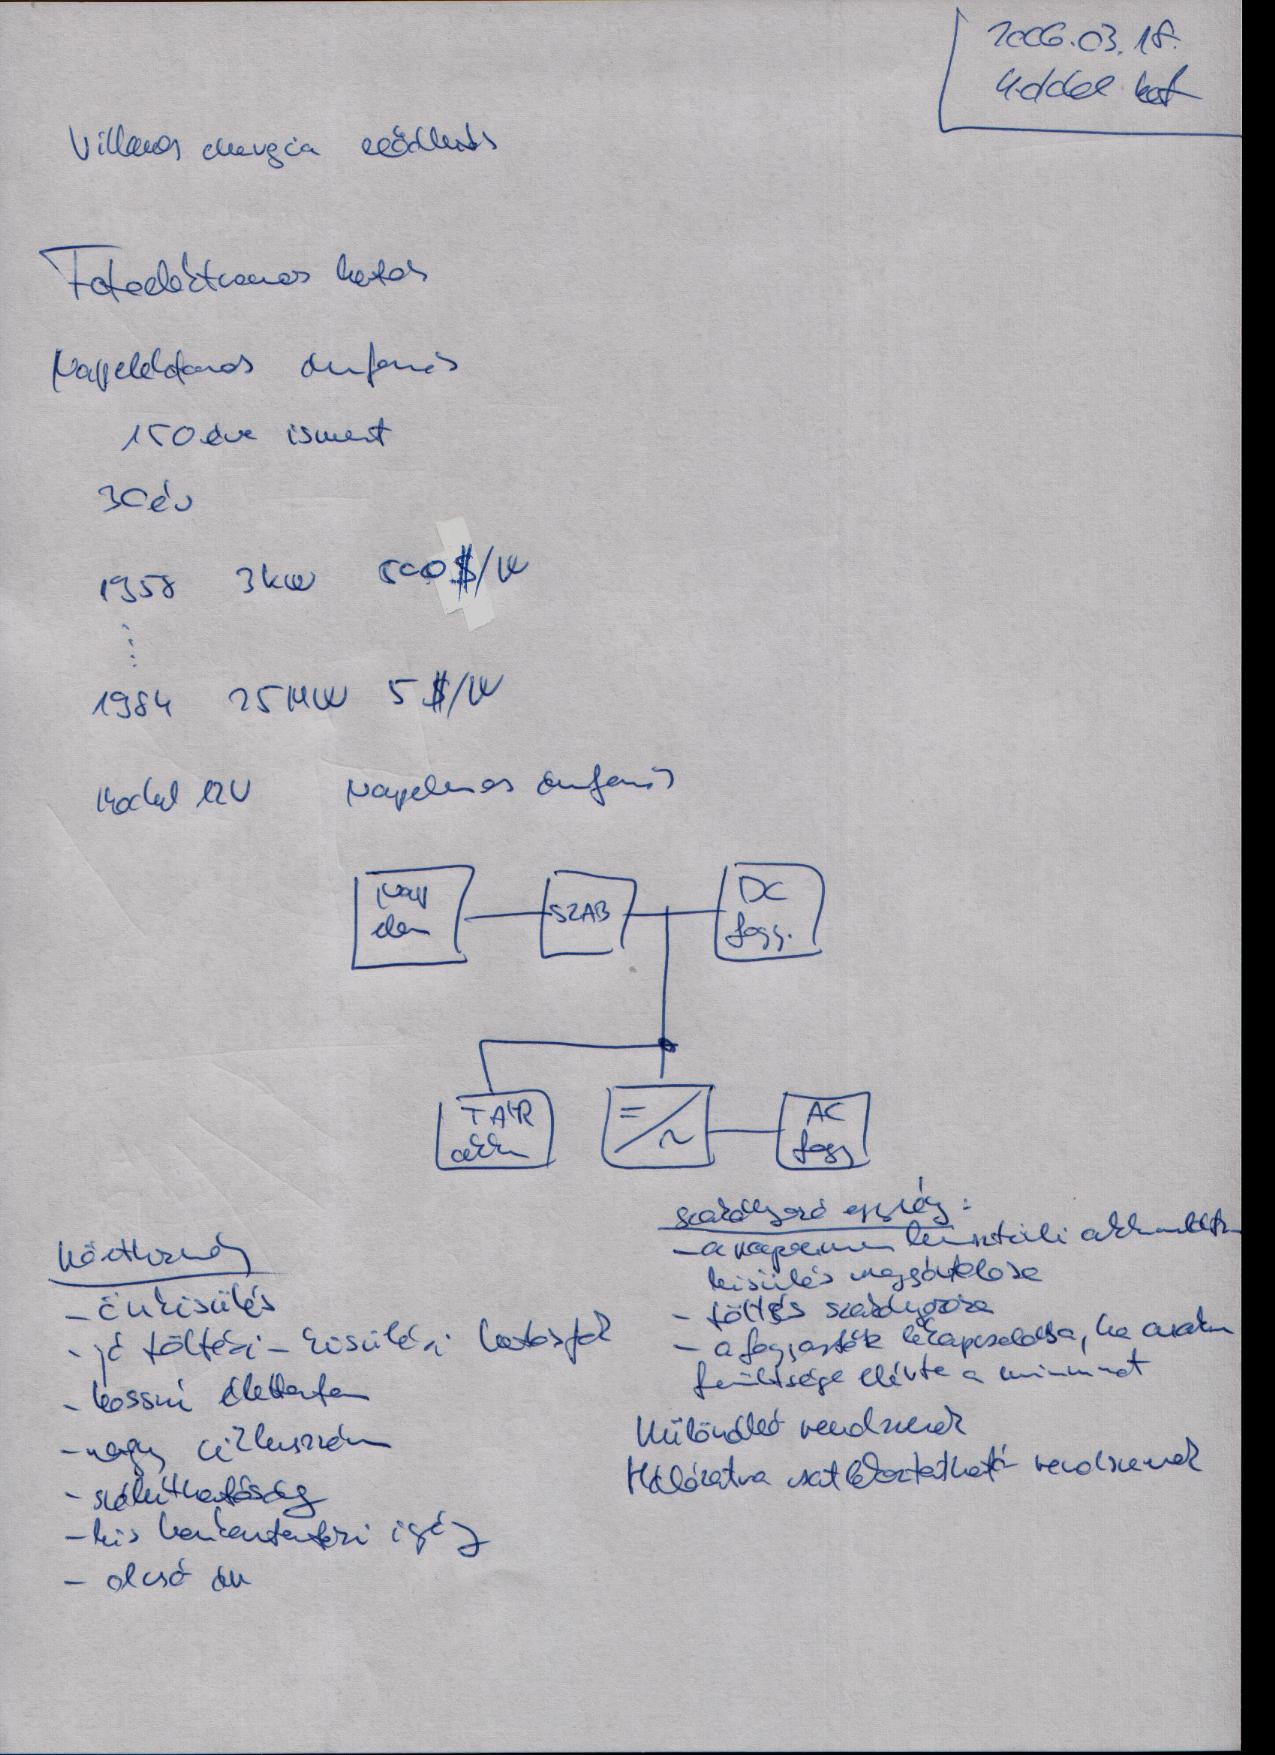 2006.03.18.
Villamos energia előállítás
Fotoelektromos hatás
Napelektromos áramforrás
150 éve ismert
30 év
1958 3kW 500 $/W
1984 25MW 5 $/W
12V Napelemes áramforrás
Nap
elem
SZAB
DC
fogy.
TÁR
akku
=
~
AC
fogy
Követelmény
- önkisülés
- jó töltési - kisülési hatásfok
- hosszú élettartam
- nagy ciklusszám
- szállíthatóság
- kis karbantartási igény
- olcsó ár
szabályozó egység:
- a napelemen keresztüli
kisülés
- töltés szabályozása
- a fogyasztók lekapcsolása, ha
feszültsége elérte a minimumot
Különálló rendszerek
Hálózatra csatlakoztatható rendszerek